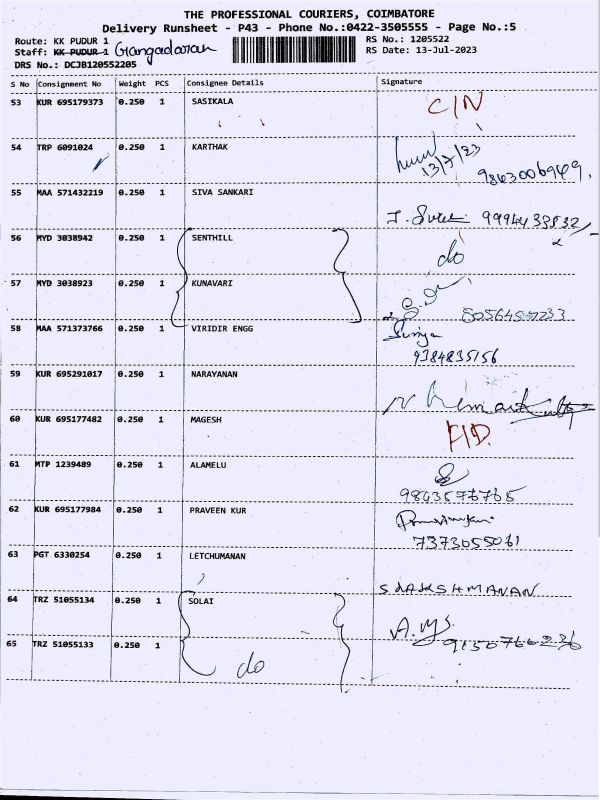 THE PROFESSIONAL COURIERS, COIMBATORE
Delivery Runsheet - P43 - Phone No.:0422-3505555 - Page No.:5
Route: KK PUDUR 1
RS No.: 1205522
Staff: KK PUDUR 1 Gangadaran
RS Date: 13-Jul-2023
DRS No.: DCJB120552205
S No Consignment No Weight PCS Consignee Details Signature
53 KUR 695179373 0.250 1 SASIKALA C/N
54 TRP 6091024 0.250 1 KARTHAK
13/7/23
55 MAA 571432219 0.250 1 SIVA SANKARI
56 MYD 3038942 0.250 1 SENTHILL do
57 MYD 3038923 0.250 1 KUNAVARI
58 MAA 571373766 0.250 1 VIRIDIR ENGG Suriya
9384835156
59 KUR 695291017 0.250 1 NARAYANAN
60 KUR 695177482 0.250 1 MAGESH
61 MTP 1239489 0.250 1 ALAMELU
9843576765
62 KUR 695177984 0.250 1 PRAVEEN KUR
7373055061
63 PGT 6330254 0.250 1 LETCHUMANAN
S LAKSHMANAN
64 TRZ 51055134 0.250 1 SOLAI
65 TRZ 51055133 0.250 1
do